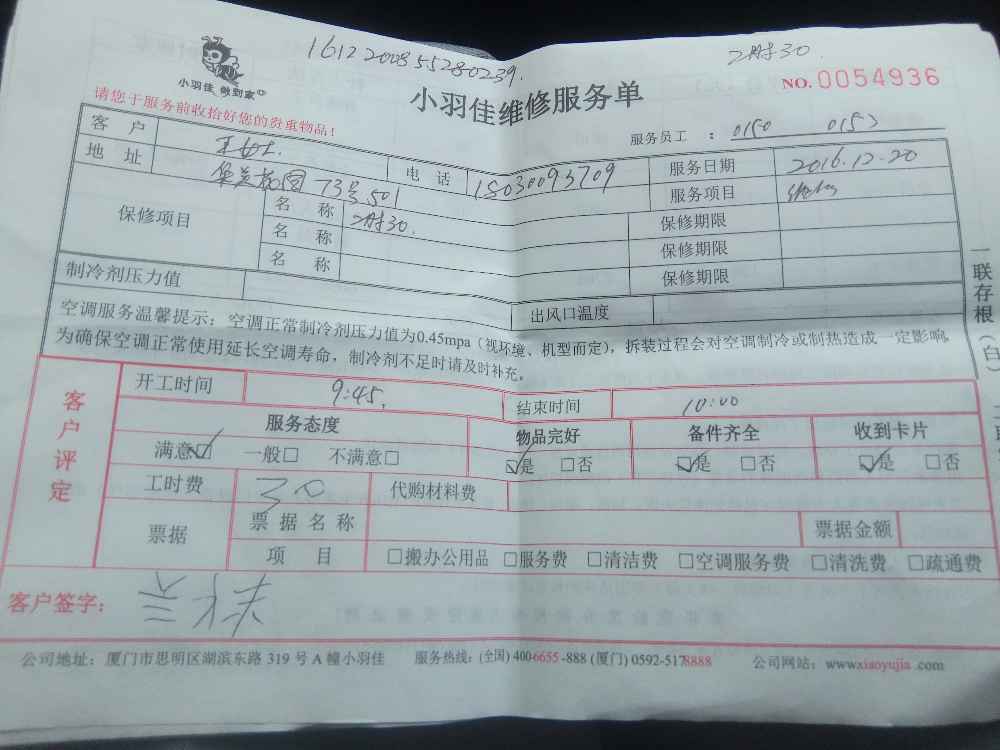 1612200855280239.
2时30.
小羽佳 做到家
小羽佳维修服务单
NO.0054936
请您于服务前收拾好您的贵重物品！
服务员工 ： 0150 0153
客 户 王女士. 电 话 18030093709 服务日期 2016.12.20
地 址 73号501 服务项目
保修项目 名 称 2时30. 保修期限
名 称 保修期限
名 称 保修期限
制冷剂压力值 出风口温度
空调服务温馨提示：空调正常制冷剂压力值为0.45mpa（视环境、机型而定），拆装过程会对空调制冷或制热造成一定影响，
为确保空调正常使用延长空调寿命，制冷剂不足时请及时补充。
一联存根（白）
客户评定
开工时间 9:45. 结束时间 10:00
服务态度 物品完好 备件齐全 收到卡片
满意☑ 一般□ 不满意□ ☑是 □否 ☑是 □否 ☑是 □否
工时费 30 代购材料费
票据 票据名称 票据金额
项 目 □搬办公用品 □服务费 □清洁费 □空调服务费 □清洗费 □疏通费
客户签字：
公司地址：厦门市思明区湖滨东路 319 号 A 幢小羽佳 服务热线：(全国) 400-6655-888 (厦门) 0592-5178888 公司网站：www.xiaoyujia.com